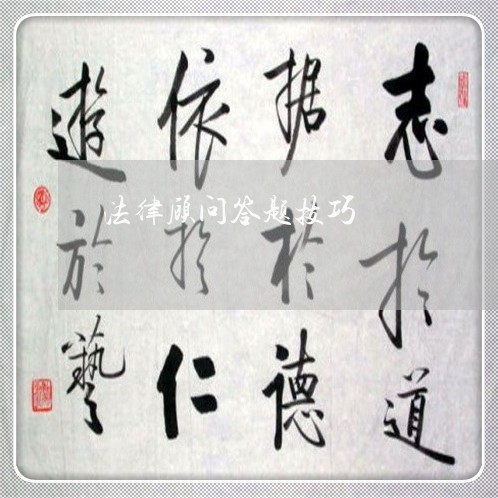 志於道
据於德
依於仁
遊於藝
法律顾问答题技巧